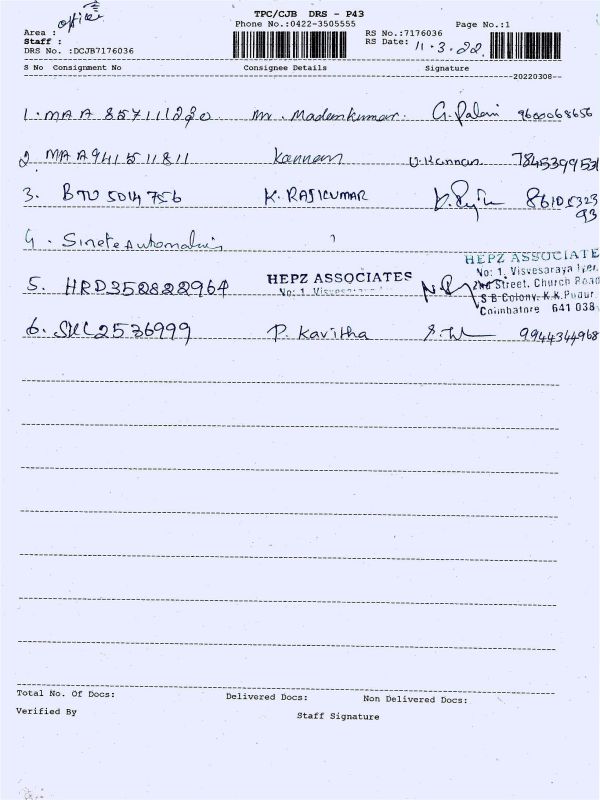 TPC/CJB DRS - P43
office
Area :
Phone No.:0422-3505555
Page No.:1
Staff :
RS No.:7176036
DRS No. :DCJB7176036
RS Date: 11.3.22
S No Consignment No Consignee Details Signature
--20220308--
1. MAA 857111220 Mr. Madamkumar. G. Palani 9600068656
2. MAA 941511811 Kannan U. Kannan 7845399531
3. BTU 5014756 K. RAJKUMAR 8610532393
4. Automatics
5. HRD352822964 HEPZ ASSOCIATES
No: 1,
HEPZ ASSOCIATE
No: 1, Visvesaraya Iyer,
2nd Street, Church Road
S B Colony, K.K.Pudur
Coimbatore 641 038
6. 2536999 P. Kavitha 9944344968
Total No. Of Docs: Delivered Docs: Non Delivered Docs:
Verified By Staff Signature